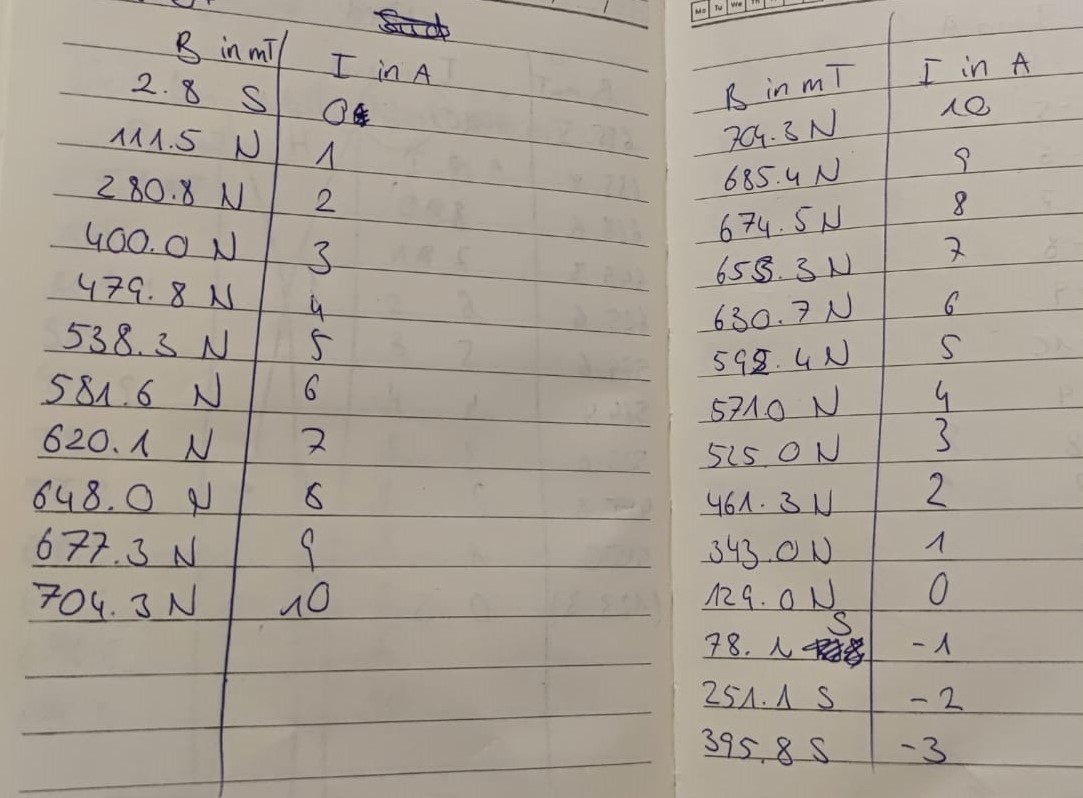 B in mT I in A
2.8 S 0
111.5 N 1
280.8 N 2
400.0 N 3
479.8 N 4
538.3 N 5
581.6 N 6
620.1 N 7
648.0 N 8
677.3 N 9
704.3 N 10
Mo Tu We Th
B in mT I in A
704.3 N 10
685.4 N 9
674.5 N 8
655.3 N 7
630.7 N 6
592.4 N 5
571.0 N 4
525.0 N 3
461.3 N 2
343.0 N 1
129.0 N 0
78.1 S -1
251.1 S -2
395.8 S -3